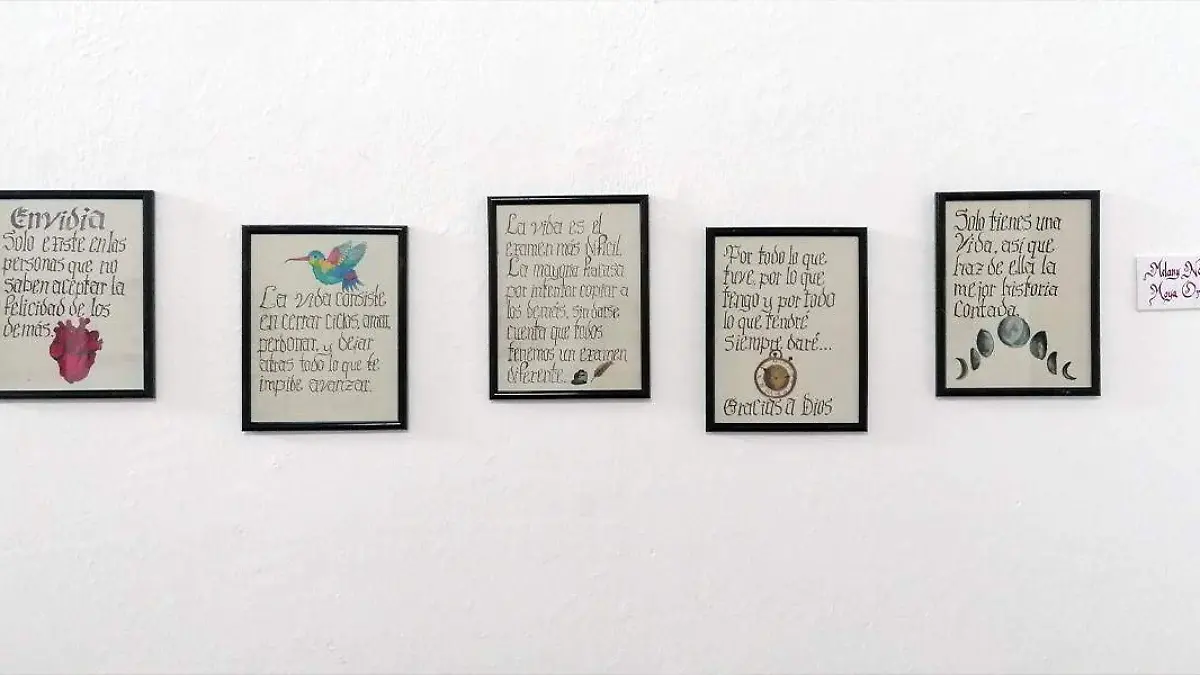 Envidia
Solo existe en las
personas que no
saben aceptar la
felicidad de los
demás.
La vida consiste
en cerrar ciclos, amar,
perdonar, y dejar
atras todo lo que te
impide avanzar.
La vida es el
examen más dificil.
La mayoria fracasa
por intentar copiar a
los demás, sin darse
cuenta que todos
tenemos un examen
diferente.
Por todo lo que
tuve, por lo que
tengo y por todo
lo que tendré
siempre daré...
Gracias a Dios
Solo tienes una
Vida, así que
haz de ella la
mejor historia
Contada.
Melany
Moya